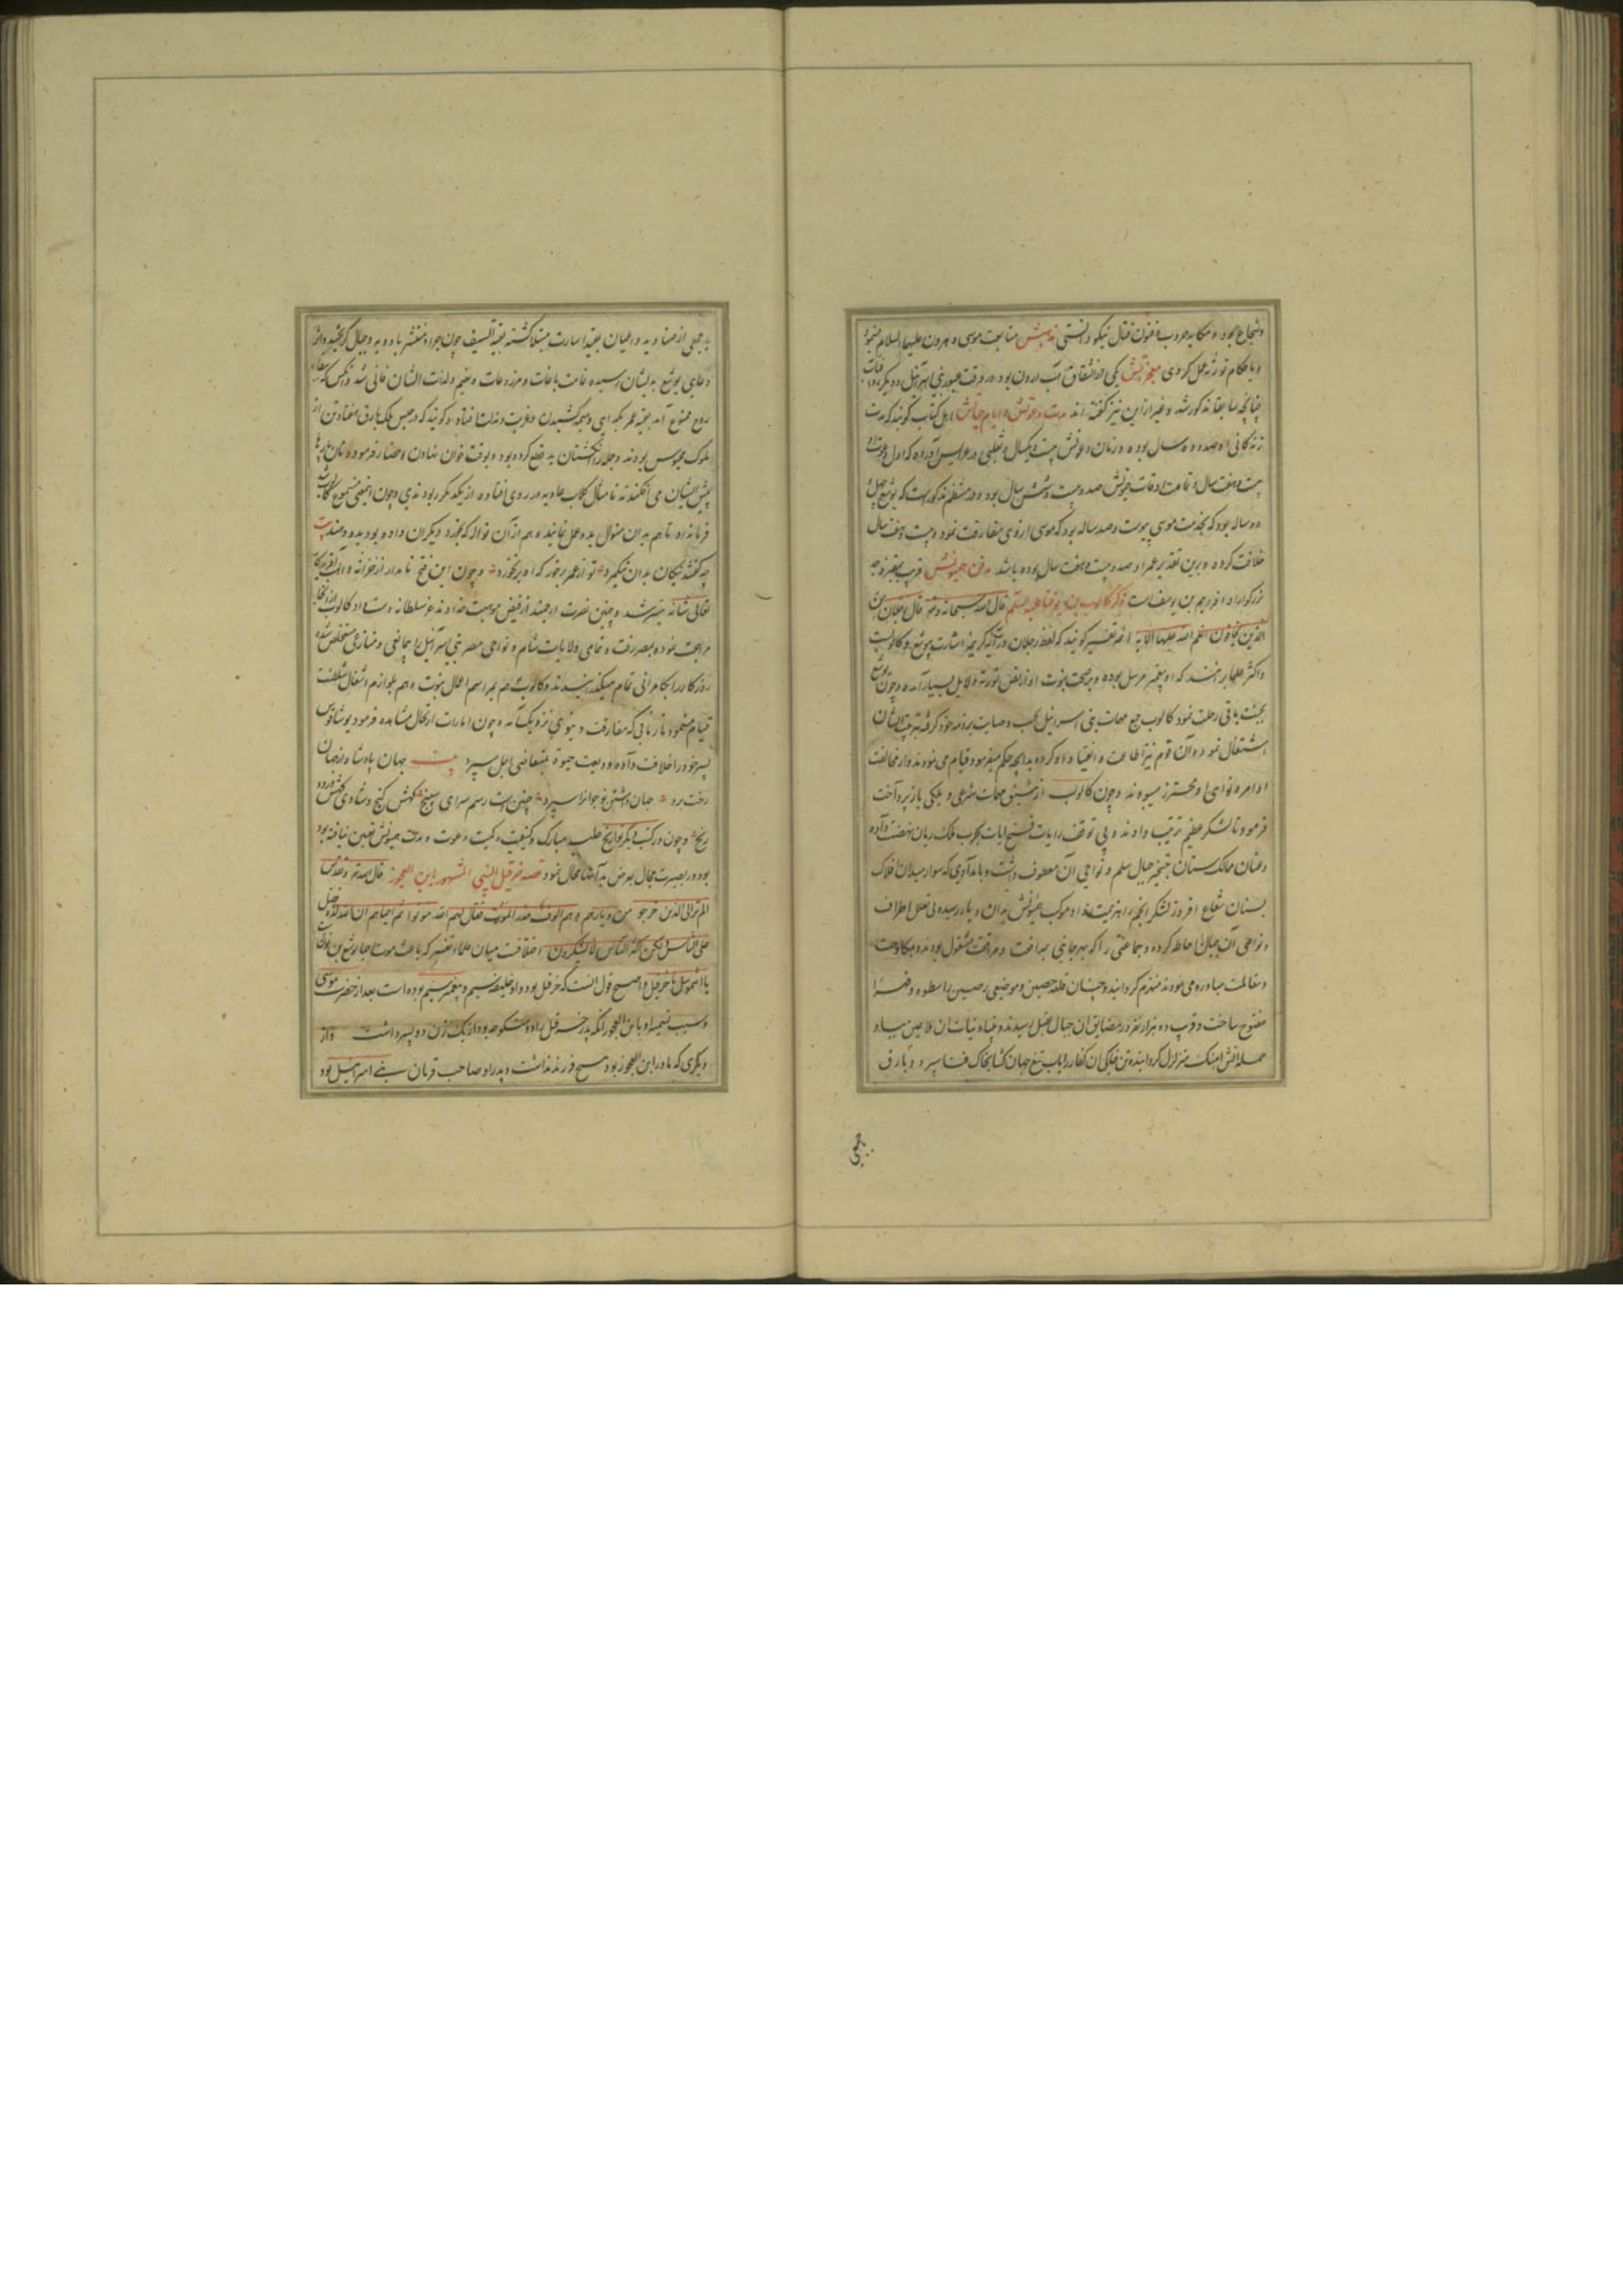 و شجاع بود و مکاید حروب و فنون قتال نیکو دانستی مذهبش متابعت موسی و هرون علیهما السلام مینمود
و باحکام توریة عمل کردی معجزاتش یکی انشقاق آب اردن بود در وقت عبور بنی اسرائیل و دیگر
چنانچه سابقا مذکور شد و غیر ازین نیز گفته اند مدت دعوتش و ایام حیاتش اهل کتاب گویند که مدت
زندگانی او صد و ده سال بوده و زمان دعوتش بیست و یکسال و ثعلبی در عرایس آورده که اول دعوت او
بیست و هفت سال و تمامت اوقات حیوتش صد و بیست و شش سال بود و در منتظم مذکورست که یوشع چهل
و دو ساله بود که بخدمت موسی پیوست و صد ساله بود که موسی از وی مفارقت نمود و بیست و هفت سال
خلافت کرده و برین تقدیر عمر او صد و بیست و هفت سال بوده باشد مدفن همیونش قریب بقبر جد
بزرگوار او افرائیم بن یوسف است ذکر کالوب بن یوفنا علیه السلم قال الله سبحانه و تعالی قال رجلان من
الذین یخافون انعم الله علیهما الآیه ائمه تفسیر گویند که لفظ رجلان در آیه کریمه اشارت بیوشع و کالوبست
و اکثر علما برانند که او پیغمبر مرسل بوده و بر صحت نبوت او از نص توریة دلایل بسیار آمده و چون یوشع
بجنت باقی رحلت نمود کالوب جمیع مهمات بنی اسرائیل بحسب وصایت بر ذمه خود گرفته بتربیت ایشان
اشتغال نمود و آن قوم نیز اطاعت و انقیاد او کرده بدانچه حکم میفرمود قیام می نمودند و از مخالفت
اوامر و نواهی او محترز میبودند و چون کالوب از تمشیت مهمات شرعی و ملکی باز پرداخت
فرمود تا لشکر عظیم ترتیب دادند و بی توقف رایات فتح آیات بحرب ملک زمان نهضت داده
و عنان ممالک ستان بتسخیر جبال سلم و نواحی آن معطوف داشت و بامدادی که سوار میدان افلاک
بسنان شعاع افروز لشکر انجم را هزیمت داد موکب همیونش بدان دیار رسیده بی تعلل اطراف
و نواحی آن جبال احاطه کرده و جماعتی را که بهر جانبی بمدافعت و مرافعت مشغول بودند و بمکاوحت
و مقاتلت مبادره می نمودند منهزم گردانیده و چنان قلعه حصین و موضعی رصین را بسطوه و قهر
مفتوح ساخت و قریب ده هزار نفر در مضایق آن جبال بقتل رسیدند و بنیاد ثبات آن ملاعین بباد
حمله آتش آهنگ متزلزل گردانیده تن خاکی آن کفار را بآب تیغ جهان کشا بخاک فنا سپرد و بارق
بجمعی
با جمعی از صنادید و اعیان بقید اسارت مبتلا گشته بقیة السیف چون جراد منتشر بادویه و جبال گریختند و اثر
دعای یوشع بدیشان رسیده تمامت باغات و مزروعات و نعیم و لذات ایشان فانی شد و آنکس که
روح ممنوع آمد بقیه عمر بگدایی و میجه کشیدن و غربت و مذلت افتاد و گویند که در حبس ملک بارق هفتاد تن از
ملوک محبوس بودند و جمله را انگشتان ید قطع کرده بود و بوقت خوان نهادن احضار فرموده نان پاره
پیش ایشان می افکندند تا مثال کلاب عاویه در روی افتاده از یکدیگر ربودندی و چون اینمعنی مسموع کالوب
فرمان داد تا هم بدان منوال بدو عمل نمایند و هم از آن نواله که بخورد دیگران داده بود بدو دهند بیت
چه گفتند نیکان بدان نیکمرد تو از عمر برخور که او بر نخورد و چون این فتح نامدار از خزانه
تعالی شانه میسر شد و چنین نصرت ارجمند از فیض موهبت خداوند عز سلطانه دست داد کالوب از آنجا
مراجعت نموده بمصر رفت و تمامی ولایات شام و نواحی مصر بنی اسرائیل را بیمانعی و منازعی مستخلص شد
روزگار در کامرانی تمام میگذرانیدند و کالوب هم بمراسم اعمال نبوت و هم بلوازم اشغال سلطنت
قیام مینمود تا زمانی که مفارقت دنیوی نزدیک آمد و چون امارات ارتحال مشاهده فرمود یوشاقوس
پسر خود را خلافت داده ودیعت حیوة بمتقاضی اجل سپرد بیت جهان پادشاه از جهان
رخت برد جهان داشتن نوجوانرا سپرد چنین است رسم سرای سپنج گهش گنج و شادی گهش درد و
رنج و چون در کتب دیگر تواریخ حلیه مبارک و کیفیت و کمیت دعوت و مدت حیوتش تعیین نیافته بود
بود در بصیرت مجال بعرض بدآنها محال نمود قصه حزقیل النبی المشهور بابن العجوز قال الله تعالی و تقدس
الم تر الی الذین خرجوا من دیارهم و هم الوف حذر الموت فقال لهم الله موتوا ثم احیاهم ان الله لذو فضل
علی الناس و لکن اکثر الناس لا یشکرون اختلافست میان علماء تفسیر که باعث موت و احیا یوشع بن نون
یا اشموئیل یا حزقیل و اصح قول آنست که حزقیل بود و او خلیفه سیم و پیغمبر سیم بوده است بعد از حضرت موسی
و سبب تسمیه او بابن العجوز آنکه پدر حزقیل را دو منکوحه بود از یک زن ده پسر داشت و از
دیگری که مادر ابن العجوز بود هیچ فرزند نداشت و پدر او صاحب قربان بنی اسرائیل بود